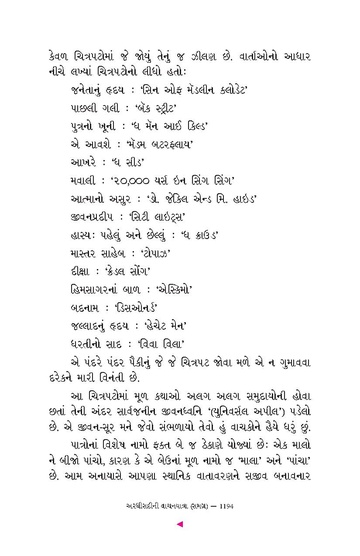 કેવળ ચિત્રપટોમાં જે જોયું તેનું જ ઝીલણ છે. વાર્તાઓનો આધાર
નીચે લખ્યાં ચિત્રપટોનો લીધો હતો:
જનેતાનું હૃદય : ‘સિન ઓફ મૅડલીન ક્લોડેટ’
પાછલી ગલી : ‘બૅક સ્ટ્રીટ’
પુત્રનો ખૂની : ‘ધ મૅન આઈ કિલ્ડ’
એ આવશે : ‘મૅડમ બટરફ્લાય’
આખરે : ‘ધ સીડ’
મવાલી : ‘૨૦,૦૦૦ યર્સ ઇન સિંગ સિંગ’
આત્માનો અસુર : ‘ડૉ. જેકિલ એન્ડ મિ. હાઇડ’
જીવનપ્રદીપ : ‘સિટી લાઇટ્સ’
હાસ્ય: પહેલું અને છેલ્લું : ‘ધ ક્રાઉડ’
માસ્તર સાહેબ : ‘ટોપાઝ’
દીક્ષા : ‘ક્રેડલ સોંગ’
હિમસાગરનાં બાળ : ‘એસ્કિમો’
બદનામ : ‘ડિસઓનર્ડ’
જલ્લાદનું હૃદય : ‘હેચેટ મેન’
ધરતીનો સાદ : ‘વિવા વિલા’
એ પંદરે પંદર પૈકીનું જે જે ચિત્રપટ જોવા મળે એ ન ગુમાવવા
દરેકને મારી વિનંતી છે.
આ ચિત્રપટોમાં મૂળ કથાઓ અલગ અલગ સમુદાયોની હોવા
છતાં તેની અંદર સાર્વજનીન જીવનધ્વનિ ‘(યુનિવર્સલ અપીલ’) પડેલો
છે. એ જીવન-સૂર મને જેવો સંભળાયો તેવો હું વાચકોને હૈયે ધરું છું.
પાત્રોનાં વિશેષ નામો ફક્ત બે જ ઠેકાણે યોજ્યાં છે: એક માલો
ને બીજો પાંચો, કારણ કે એ બેઉનાં મૂળ નામો જ ‘માલા’ અને ‘પાંચા’
છે. આમ અનાયાસે આપણા સ્થાનિક વાતાવરણને સજીવ બનાવનાર
અરધીસદીની વાચનયાત્રા (સમગ્ર) — 1194